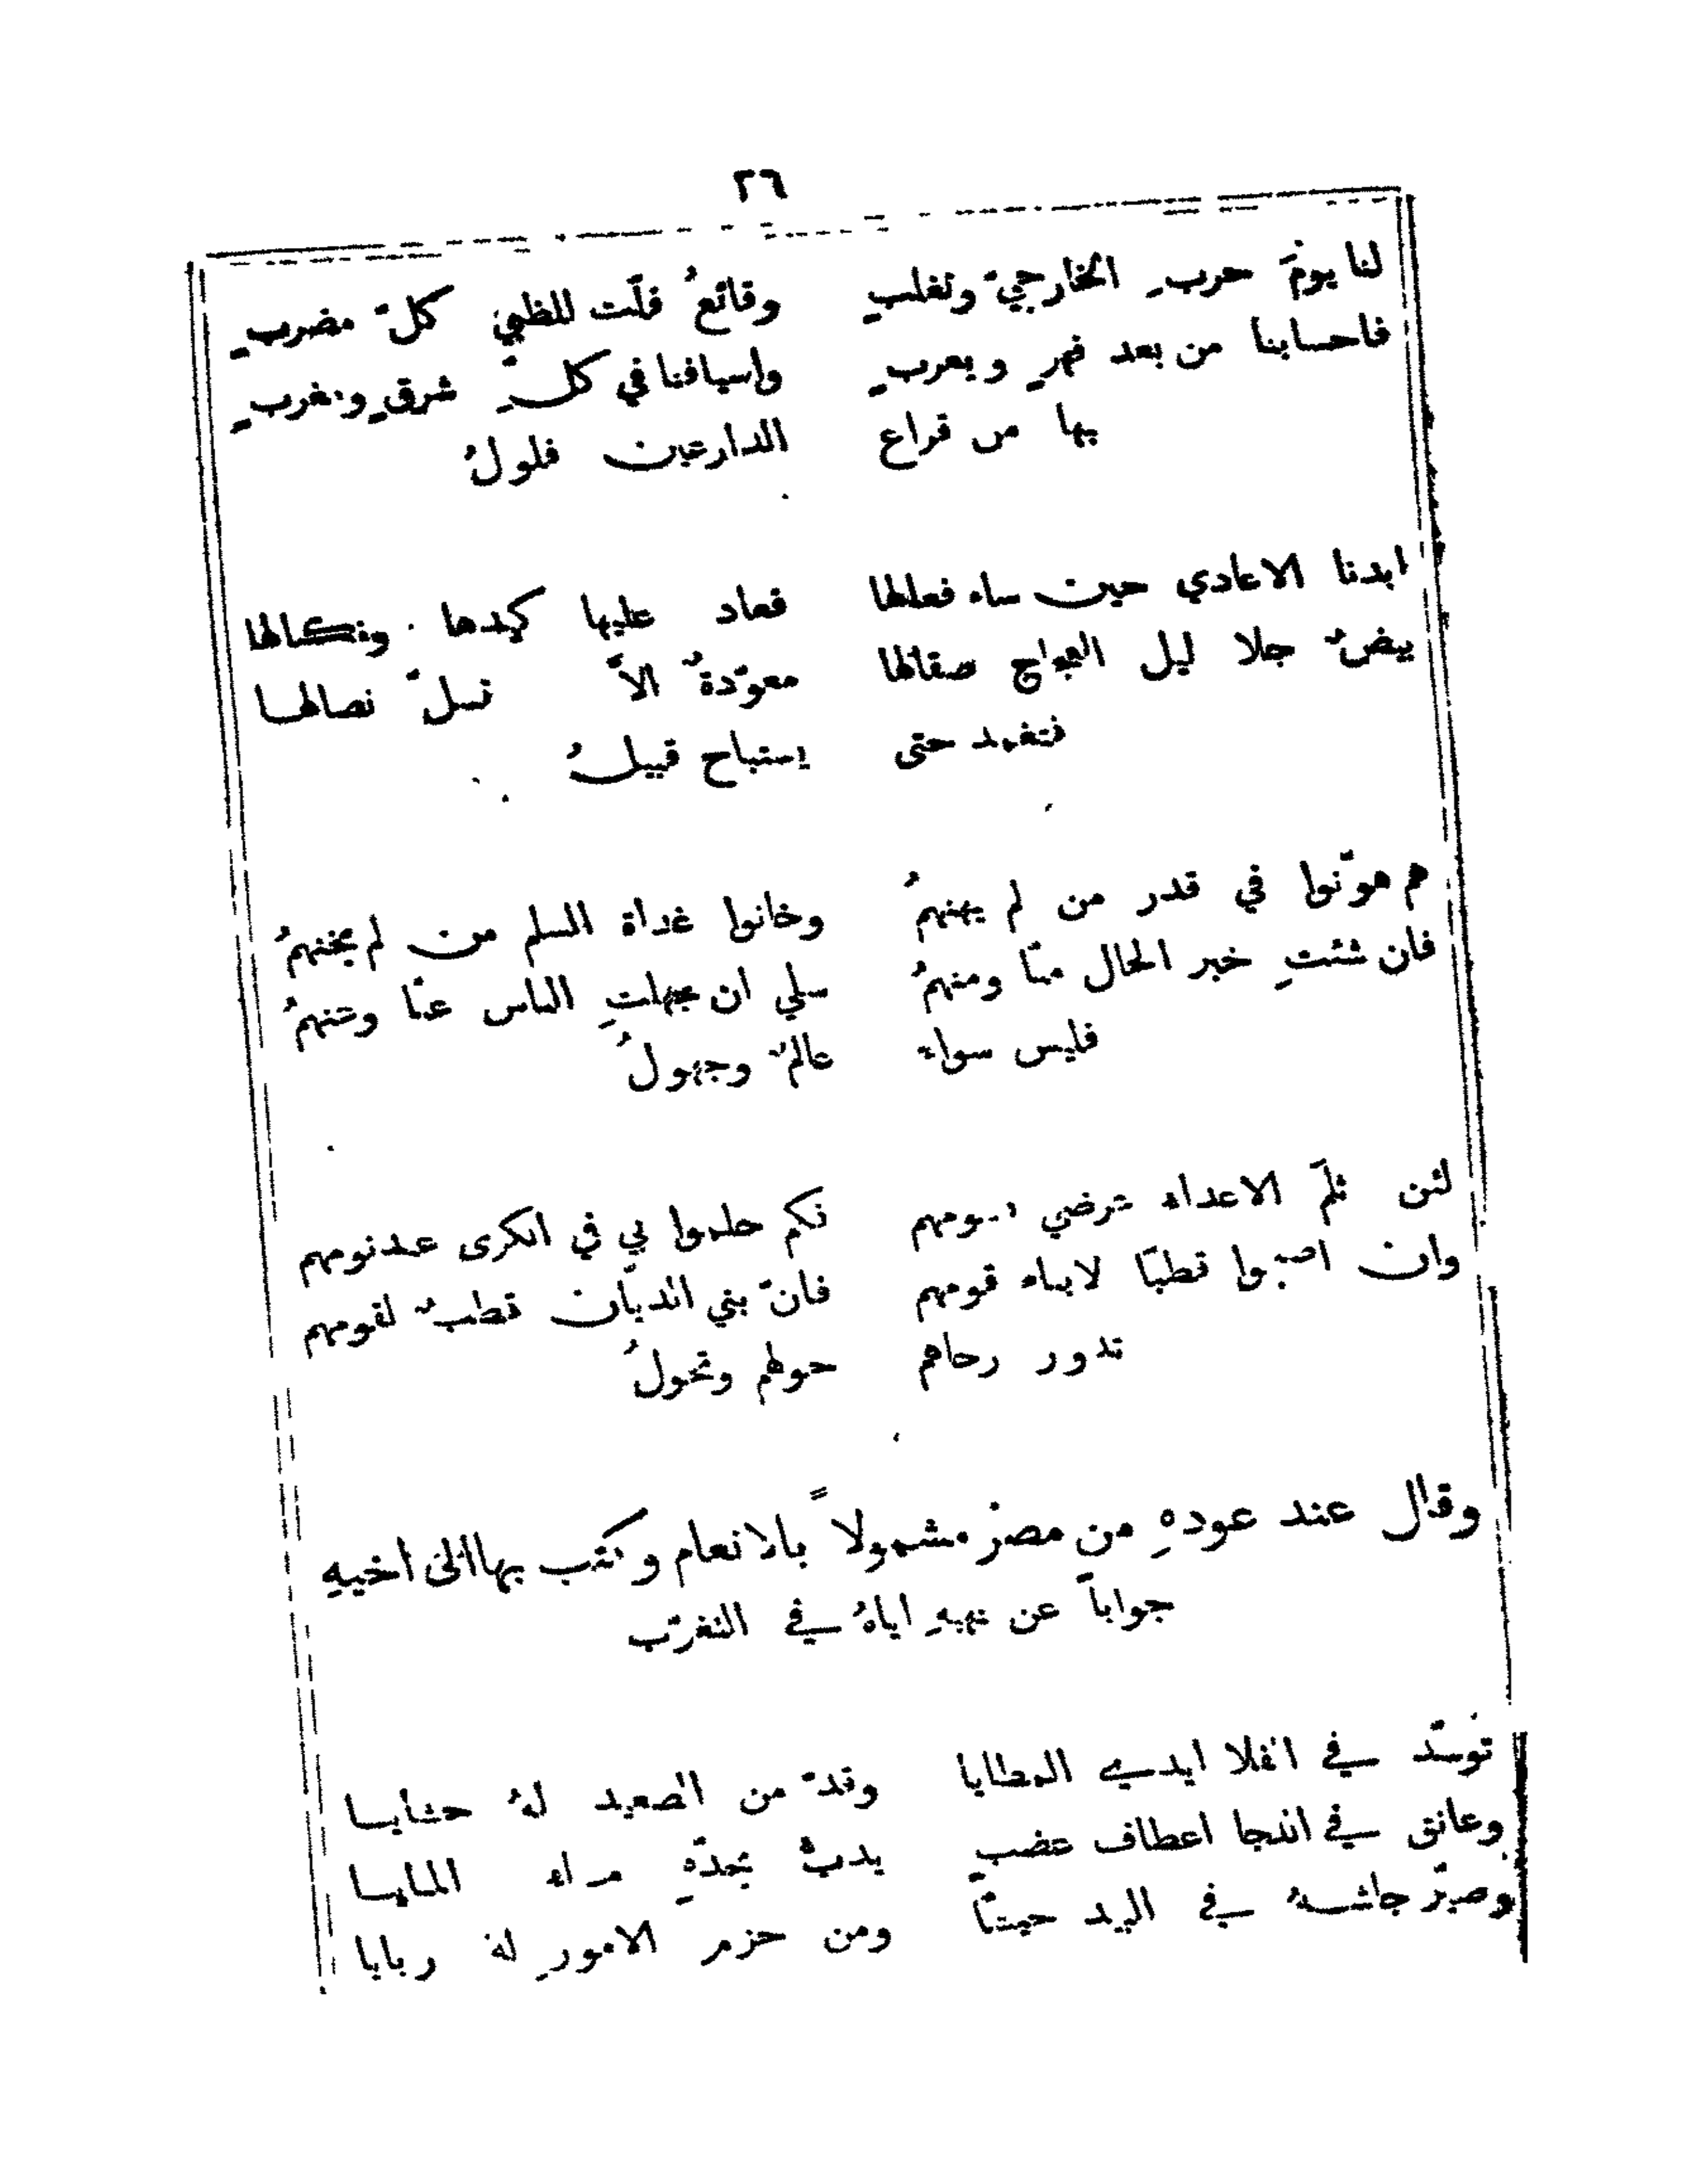 ٢٦
لنا يومَ حربِ الخارجيّ وتغلبٍ وقائعُ فلّت للظبيّ كلّ مضربٍ
فاحسابنا من بعد فهرٍ ويعربٍ واسيافنا في كلّ شرقٍ ومغربٍ
بها من قراع الدارعين فلولُ
ابدنا الاعادي حين ساء فعلها فعاد عليها كيدها ونكالها
بيضٌ جلا ليل العجاج صقالها معوّدةٌ الاّ تسلّ نصالها
فتغمد حتى يستباح قبيلُ
هم هوّنوا في قدر من لم يهنهمُ وخانوا غداة السلم من لم يخنهمُ
فان شئتِ خبر الحال منّا ومنهمُ سلي ان جهلتِ الناس عنّا وعنهمُ
فليس سواء عالمٌ وجهولُ
لئن ثلمَ الاعداء عرضي بسومهم فكم حلموا بي في الكرى عند نومهم
وان اصبحوا قطبًا لابناء قومهم فانّ بني الديّان قطبٌ لقومهم
تدور رحاهم حولهم وتحولُ
وقال عند عودهِ من مصر مشمولاً بالانعام وكتب بها الى اخيهِ
جواباً عن نهيهِ اياهُ في التغرّب
توسّد في الفلا ايدي المطايا وقدّ من الصعيد لهُ حشايا
وعانق في الدجا اعطاف عضبٍ يدبّ بحدّهِ ماء المنايا
وصيّر جاشهُ في البيد حيّتًا ومن حزم الامورِ لهُ ربايا